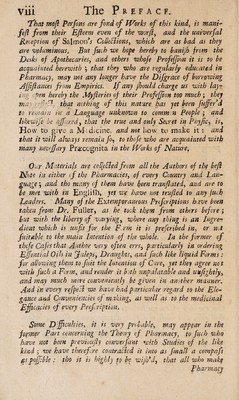 viii The PREFACE.
That most Persons are fond of Works of this kind, is mani-
fest from their Esteem even of the worst, and the universal
Reception of Salmon's Collections, which are as bad as they
are voluminous. But such we hope hereby to banish from the
Desks of Apothecaries, and others whose Profession it is to be
acquainted herewith; that they who are regularly educated in
Pharmacy, may not any longer have the Disgrace of borrowing
Assistances from Empirics. If any should charge us with lay-
ing open hereby the Mysteries of their Profession too much; they
may reflect, that nothing of this nature has yet been suffer'd
to remain in a Language unknown to the common People; and
likewise be assured, that the true and only Secret in Physic, is,
How to give a Medicine, and not how to make it: and
that it will always remain so, to those who are acquainted with
many necessary Præcognita in the Works of Nature.
Our Materials are collected from all the Authors of the best
Note in either of the Pharmacies, of every Country and Lan-
guage; and tho many of them have been translated, and are to
be met with in English, yet we have not trusted to any such
Leaders. Many of the Extemporaneous Prescriptions have been
taken from Dr. Fuller, as he took them from others before;
but with the liberty of varying, where any thing is an Ingre-
dient which is unfit for the Form it is prescribed in, or not
suitable to the main Intention of the whole. In the former of
these Cases that Author very often errs, particularly in ordering
Essential Oils in Juleps, Draughts, and such like liquid Forms:
for allowing them to suit the Intention of Cure, yet they agree not
with such a Form, and render it both unpalatable and unsightly,
and may much more conveniently be given in another manner.
And in every respect we have had particular regard to the Ele-
gance and Conveniencies of making, as well as to the medicinal
Efficacies of every Prescription.
Some Difficulties, it is very probable, may appear in the
former Part concerning the Theory of Pharmacy, to such who
have not been previously conversant with Studies of the like
kind; we have therefore contracted it into as small a compass
as possible: tho it is highly to be wish'd, that all who make
Pharmacy